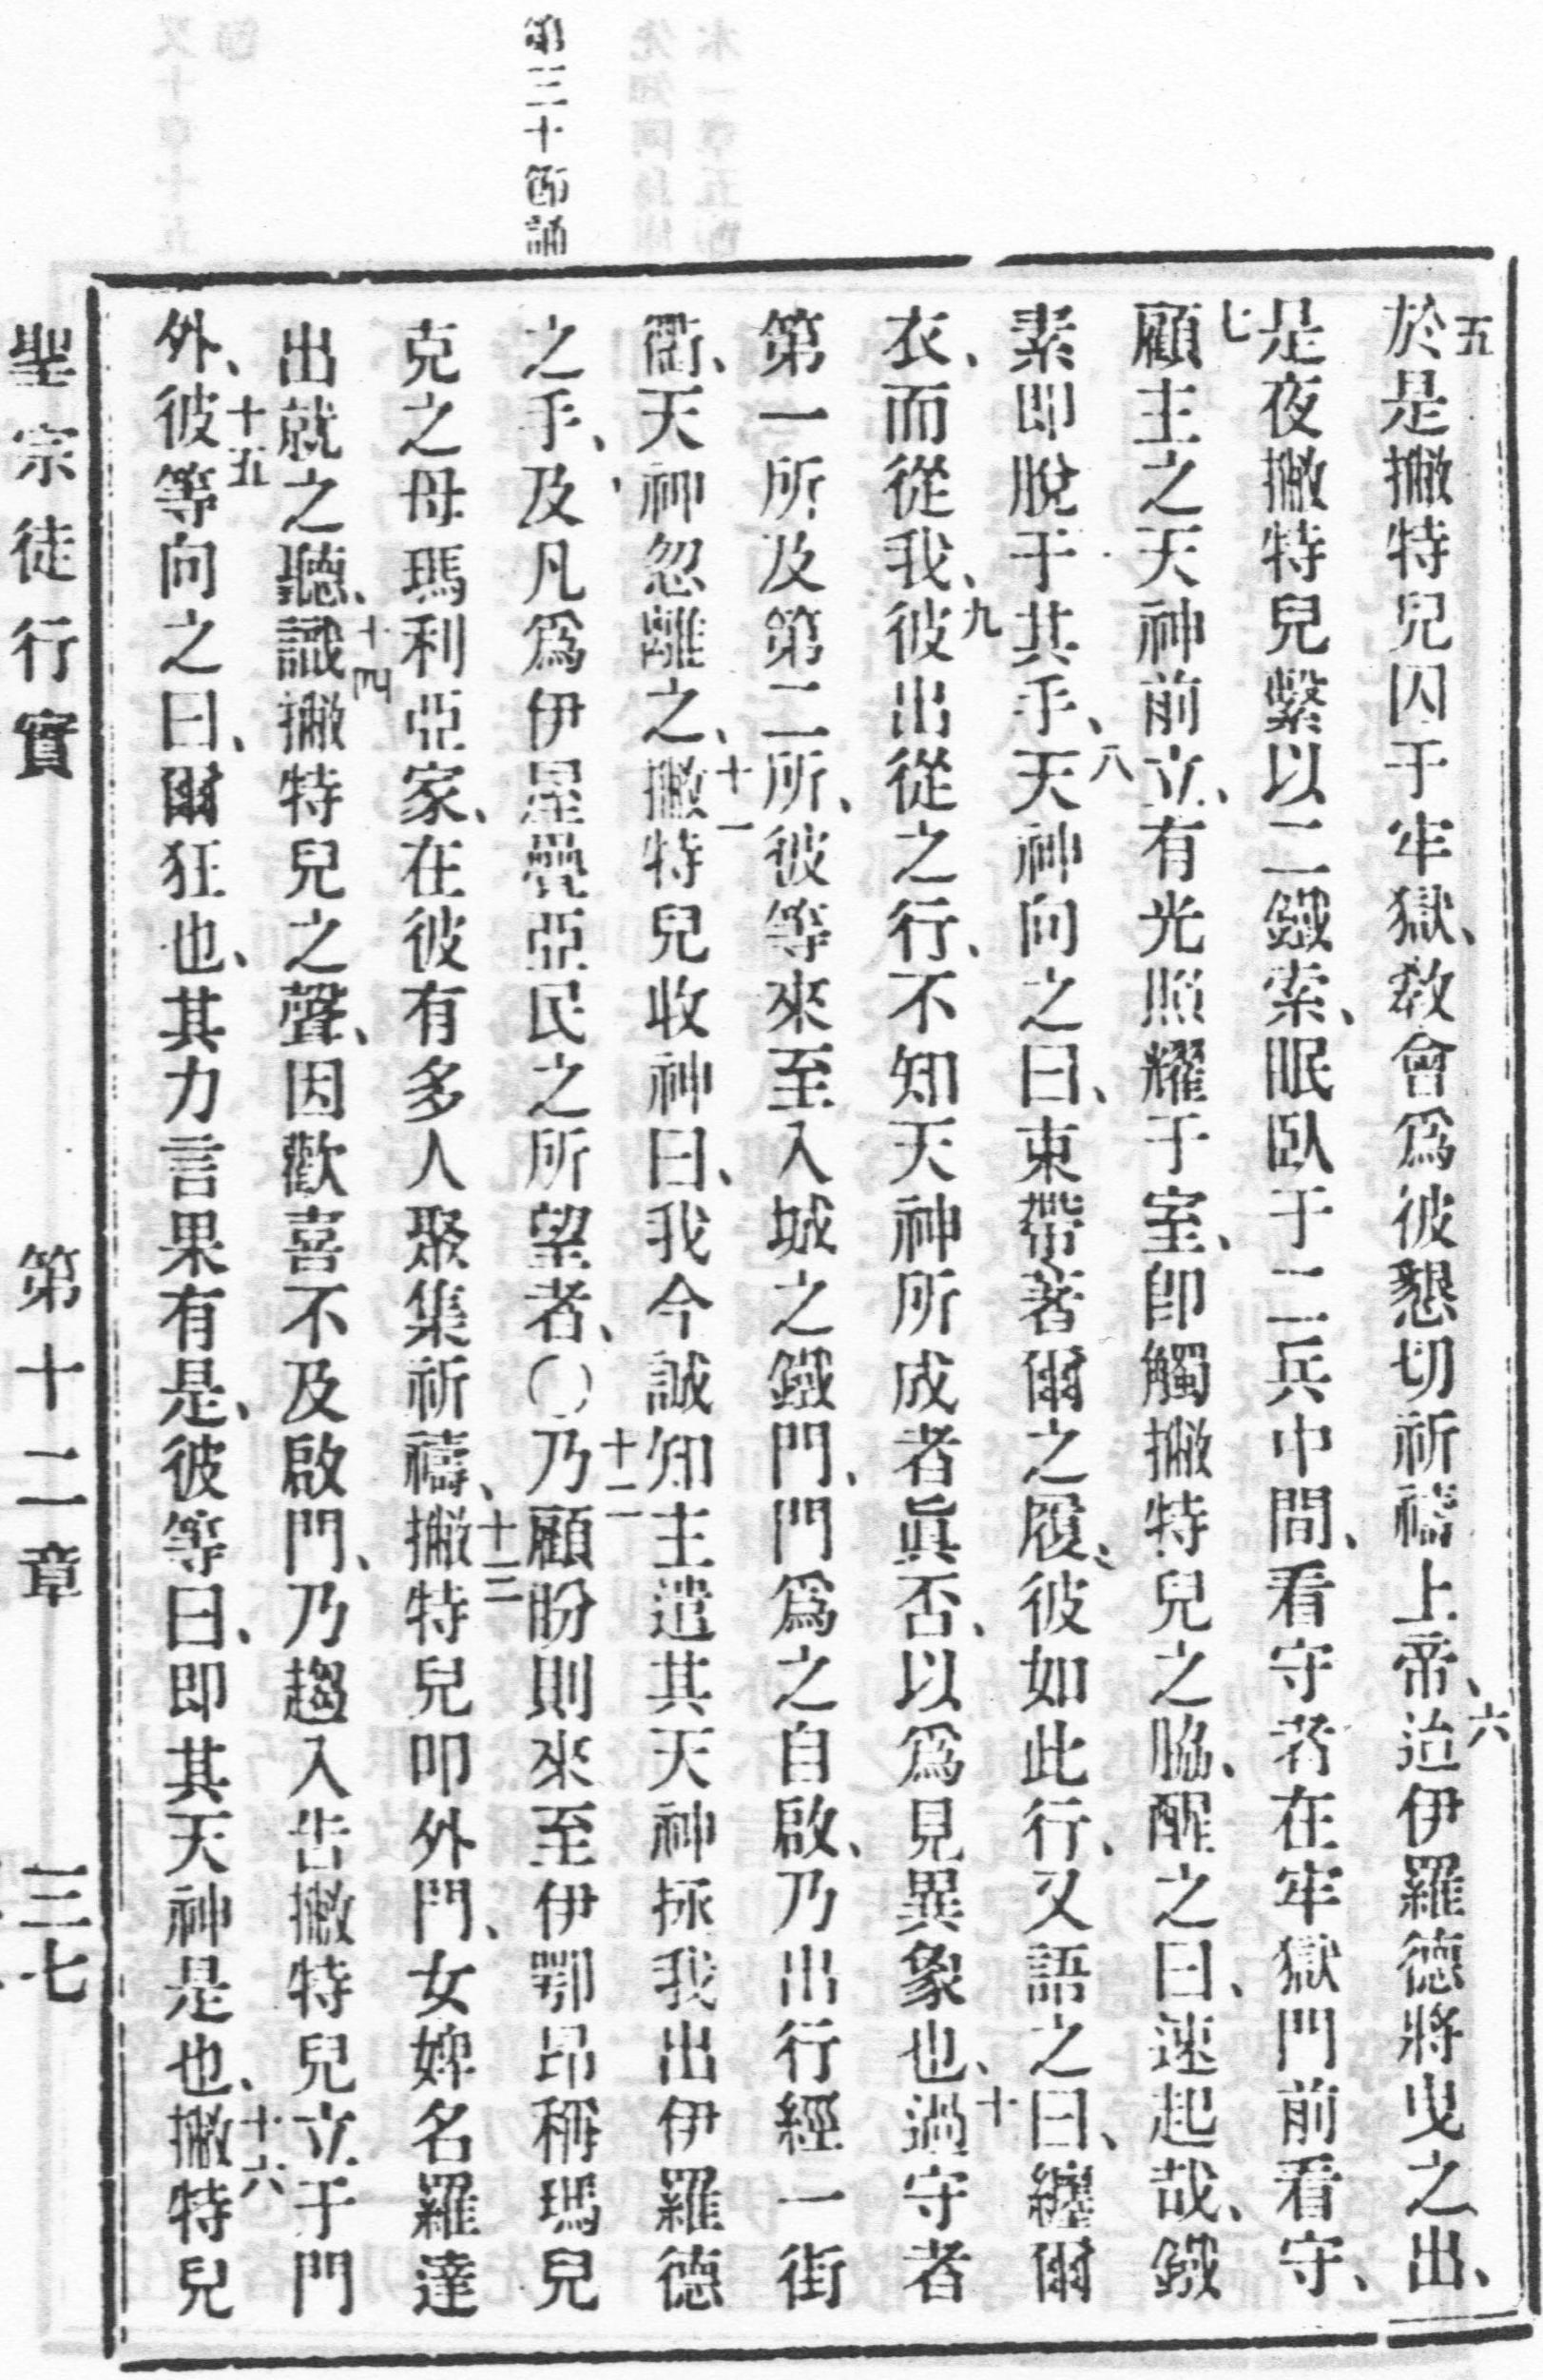 第三十節誦
五於是撇特兒囚于牢獄、教會爲彼懇切祈禱上帝、六迨伊羅德將曳之出、
是夜撇特兒繫以二鐵索、眠臥于二兵中間、看守者在牢獄門前看守、
七顧主之天神前立、有光照耀于室、卽觸撇特兒之脇、醒之曰、速起哉、鐵
素即脫于其手、八天神向之曰、束帶著爾之履、彼如此行、又語之曰、纏爾
衣、而從我、九彼出從之行、不知天神所成者眞否、以爲見異象也、十過守者
第一所及第二所、彼等來至入城之鐵門、門爲之自啟、乃出行經一街
衢、天神忽離之、十一撇特兒收神曰、我今誠知主遣其天神拯我出伊羅德
之手、及凡爲伊星疊亞民之所望者、〇十二乃顧盼則來至伊鄂昂稱瑪兒
克之母瑪利亞家、在彼有多人聚集祈禱、十三撇特兒叩外門、女婢名羅達
出就之聽、十四識撇特兒之聲、因歡喜不及啟門、乃趨入告撇特兒立于門
外、十五彼等向之曰、爾狂也、其力言果有是、彼等曰、即其天神是也、十六撇特兒
聖宗徒行實 第十二章 三七